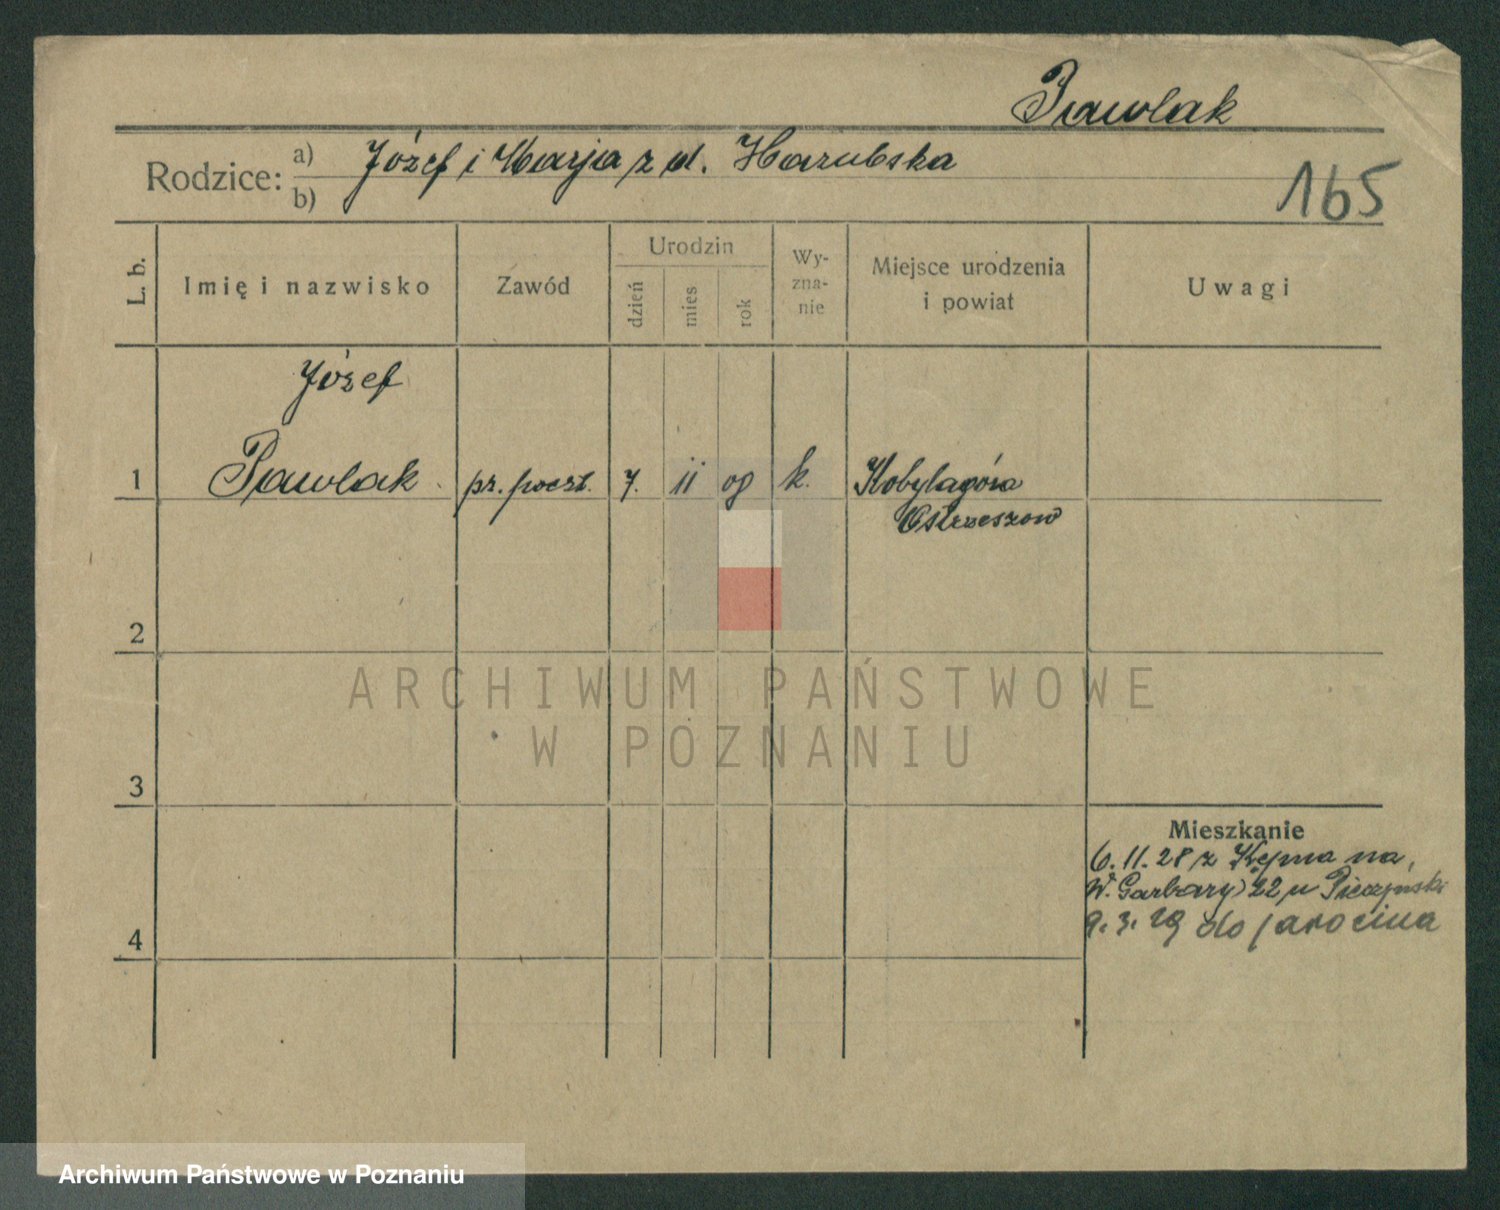 Pawlak
Rodzice: a) Józef i Marja z d. Harubska
b)
165
L. b.
Imię i nazwisko
Zawód
Urodzin
dzień
mies
rok
Wy-
zna-
nie
Miejsce urodzenia
i powiat
Uwagi
Józef
1 Pawlak pr. poczt. 7. 11 09 k. Kobylagóra
Ostrzeszow
2
ARCHIWUM PAŃSTWOWE
W POZNANIU
3
Mieszkanie
6.11.28 z Kępna na
W. Garbary 22 u
9.3.29 do Jarocina
4
Archiwum Państwowe w Poznaniu